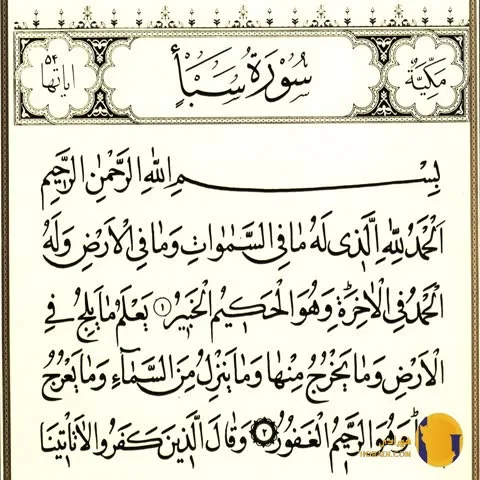 مكيّة
سُورَةُ سَبَأٍ
اياتها ٥٤
بِسْمِ اللّٰهِ الرَّحْمٰنِ الرَّحِيمِ
اَلْحَمْدُ لِلّٰهِ الَّذِى لَهُ مَا فِى السَّمٰوَاتِ وَمَا فِى الْاَرْضِ وَلَهُ
الْحَمْدُ فِى الْاٰخِرَةِ وَهُوَ الْحَكِيمُ الْخَبِيرُ ١ يَعْلَمُ مَا يَلِجُ فِى
الْاَرْضِ وَمَا يَخْرُجُ مِنْهَا وَمَا يَنْزِلُ مِنَ السَّمَآءِ وَمَا يَعْرُجُ
الرَّحِيمُ الْغَفُورُ ٢ وَقَالَ الَّذِينَ كَفَرُوا لَا تَاْتِينَا